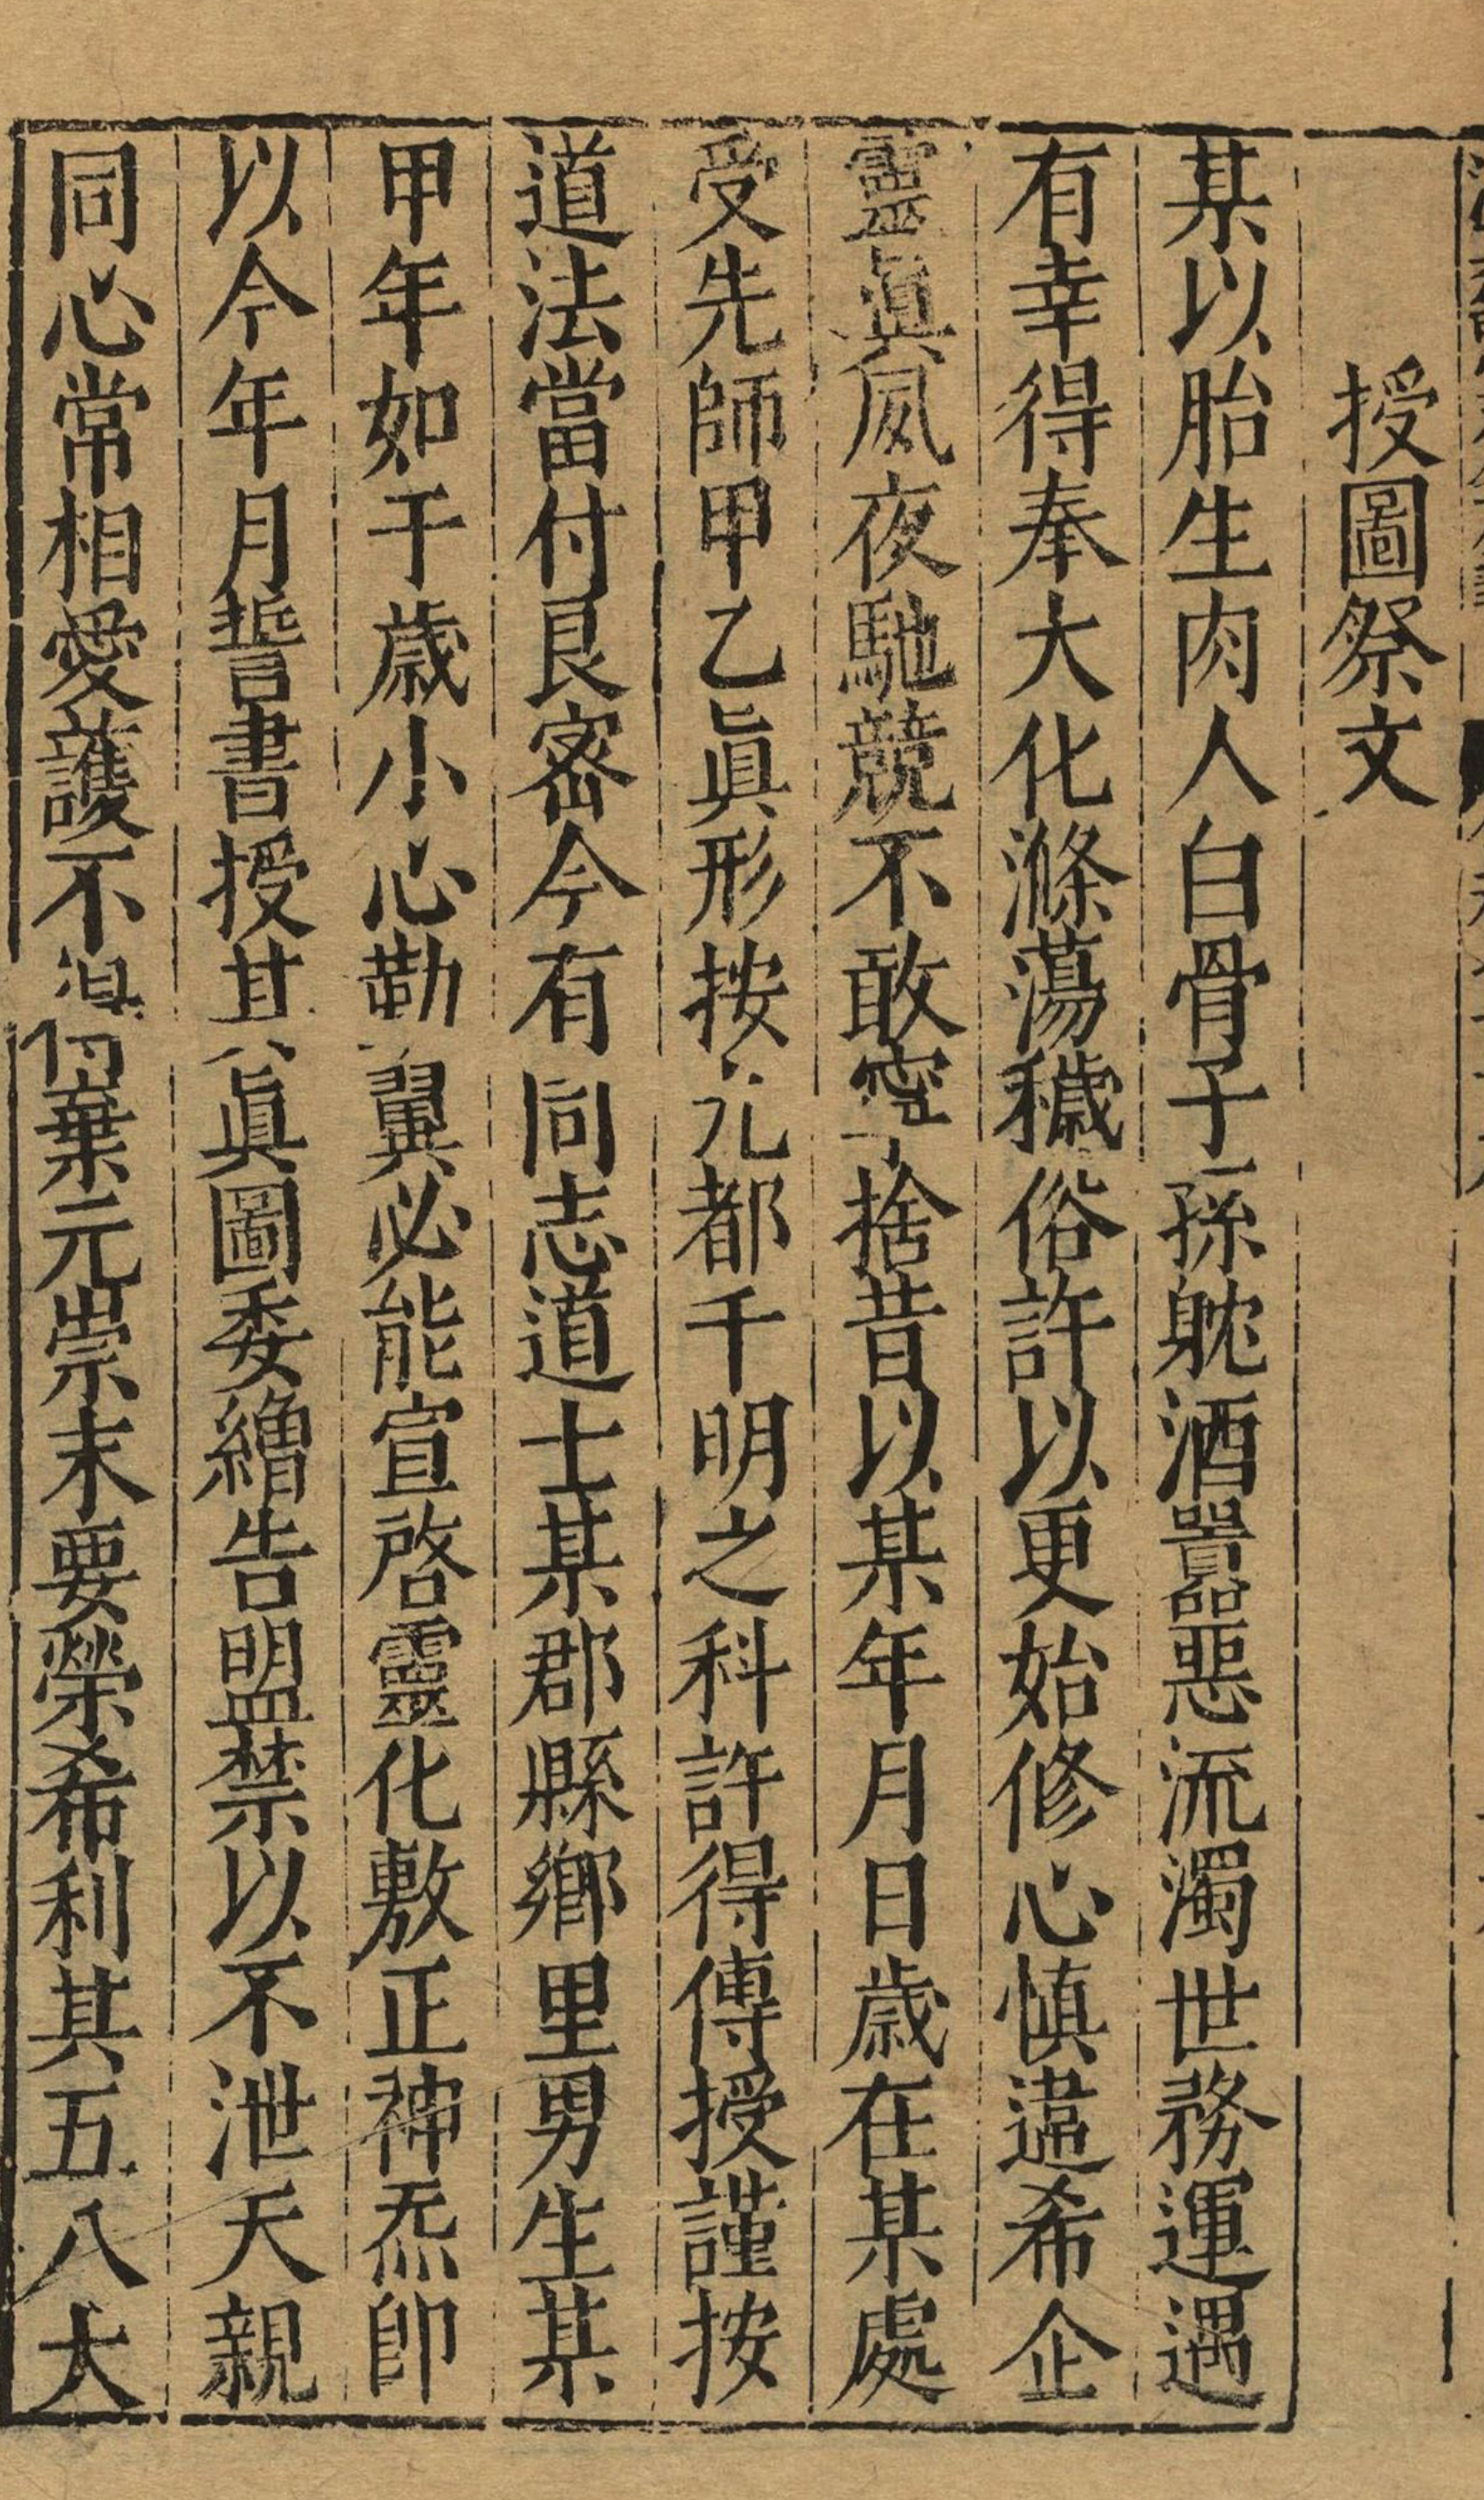 授圖祭文
某以胎生肉人白骨子孫躭酒囂惡流濁世務運遇
有幸得奉大化滌蕩穢俗許以更始修心慎違希企
靈眞夙夜馳競不敢寧捨昔以某年月日歲在某處
受先師甲乙眞形按元都千明之科許得傳授謹按
道法當付艮密今有同志道士某郡縣鄉里男生某
甲年如干歲小心勤翼必能宣啓靈化敷正神炁即
以今年月誓書授其眞圖委繒告盟禁以不泄天親
同心常相愛護不得棄元崇末要榮希利其五八大